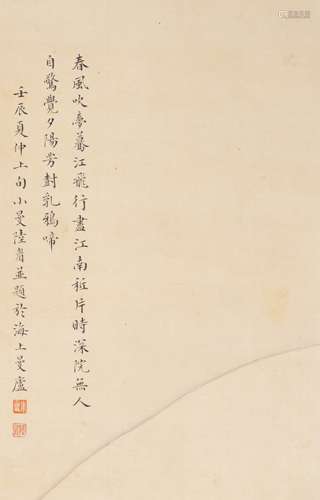 春風吹夢驀江飛行盡江南秪片時深院無人
自驚覺夕陽芳樹乳鴉啼
壬辰夏仲上旬小曼陸眉並題於海上曼廬